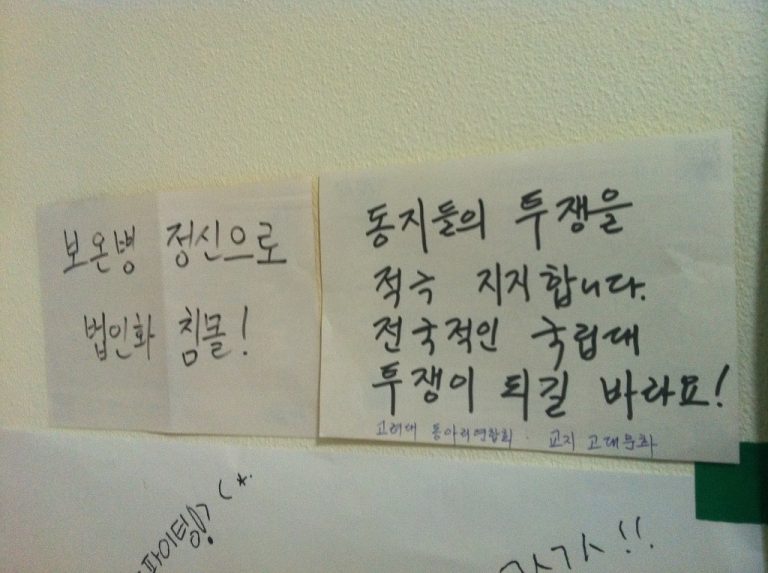 보온병 정신으로
법인화 침몰!
동지들의 투쟁을
적극 지지합니다.
전국적인 국립대
투쟁이 되길 바라요!
고려대 동아리연합회 · 교지 고대문화
파이팅!